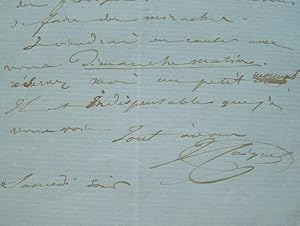 de faire des miracles.
Je viendrai en causer avec
vous Dimanche matin.
réservez moi un petit
Il est indispensable que je
vous voie
Tout à vous
Samedi soir